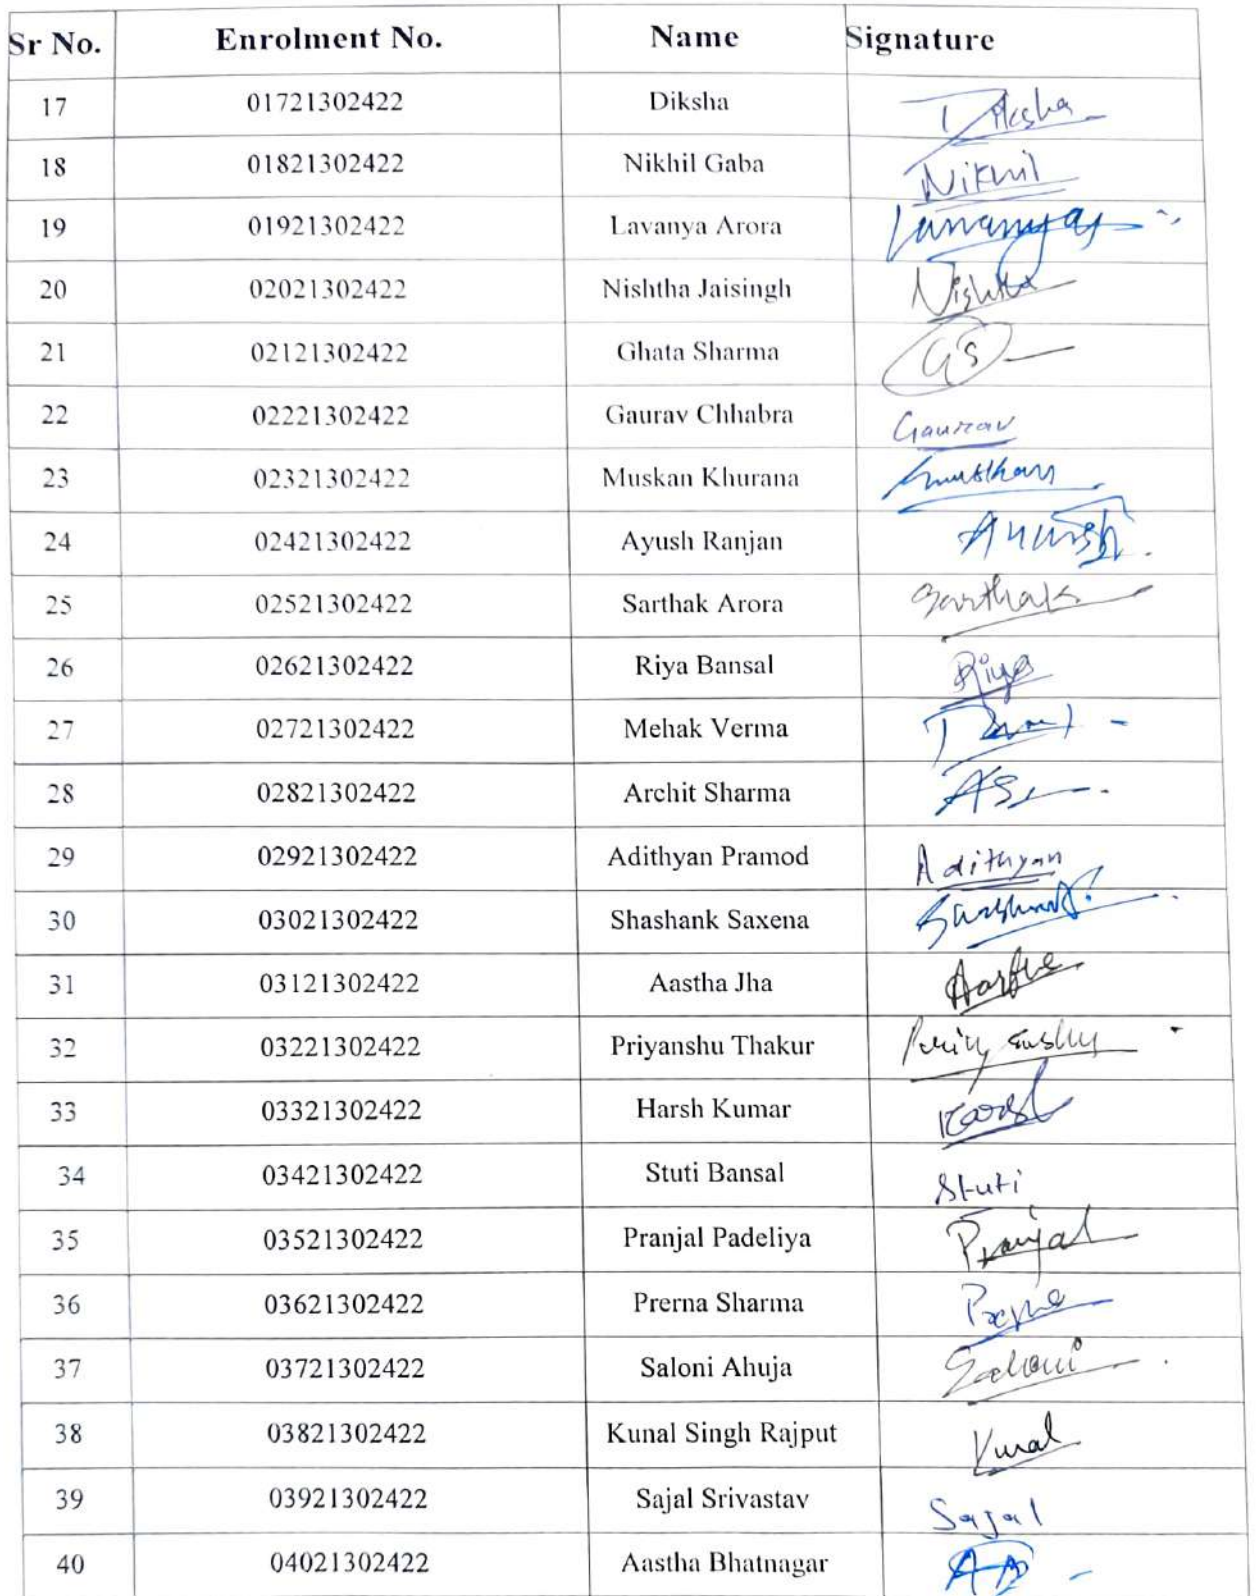 Sr No. Enrolment No. Name Signature
17 01721302422 Diksha Diksha
18 01821302422 Nikhil Gaba Nikhil
19 01921302422 Lavanya Arora
20 02021302422 Nishtha Jaisingh Nishtha
21 02121302422 Ghata Sharma GS
22 02221302422 Gaurav Chhabra Gaurav
23 02321302422 Muskan Khurana
24 02421302422 Ayush Ranjan
25 02521302422 Sarthak Arora Sarthak
26 02621302422 Riya Bansal Riya
27 02721302422 Mehak Verma
28 02821302422 Archit Sharma AS
29 02921302422 Adithyan Pramod Adithyan
30 03021302422 Shashank Saxena
31 03121302422 Aastha Jha
32 03221302422 Priyanshu Thakur
33 03321302422 Harsh Kumar
34 03421302422 Stuti Bansal Stuti
35 03521302422 Pranjal Padeliya Pranjal
36 03621302422 Prerna Sharma
37 03721302422 Saloni Ahuja Saloni
38 03821302422 Kunal Singh Rajput Kunal
39 03921302422 Sajal Srivastav Sajal
40 04021302422 Aastha Bhatnagar